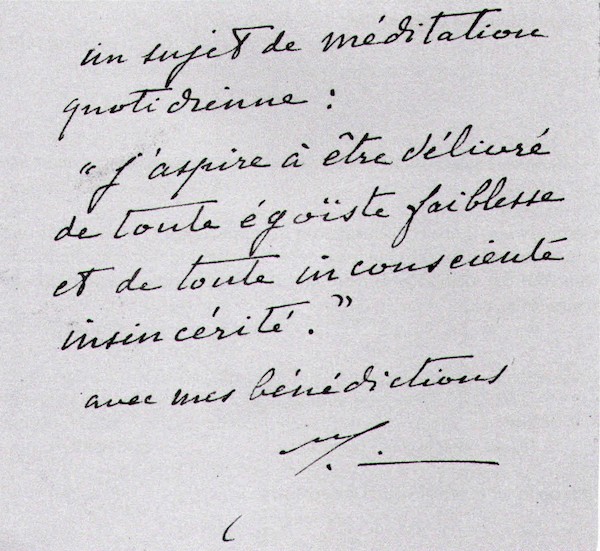 un sujet de méditation
quotidienne :
"J'aspire à être délivré
de toute égoïste faiblesse
et de toute inconsciente
insincérité."
avec mes bénédictions